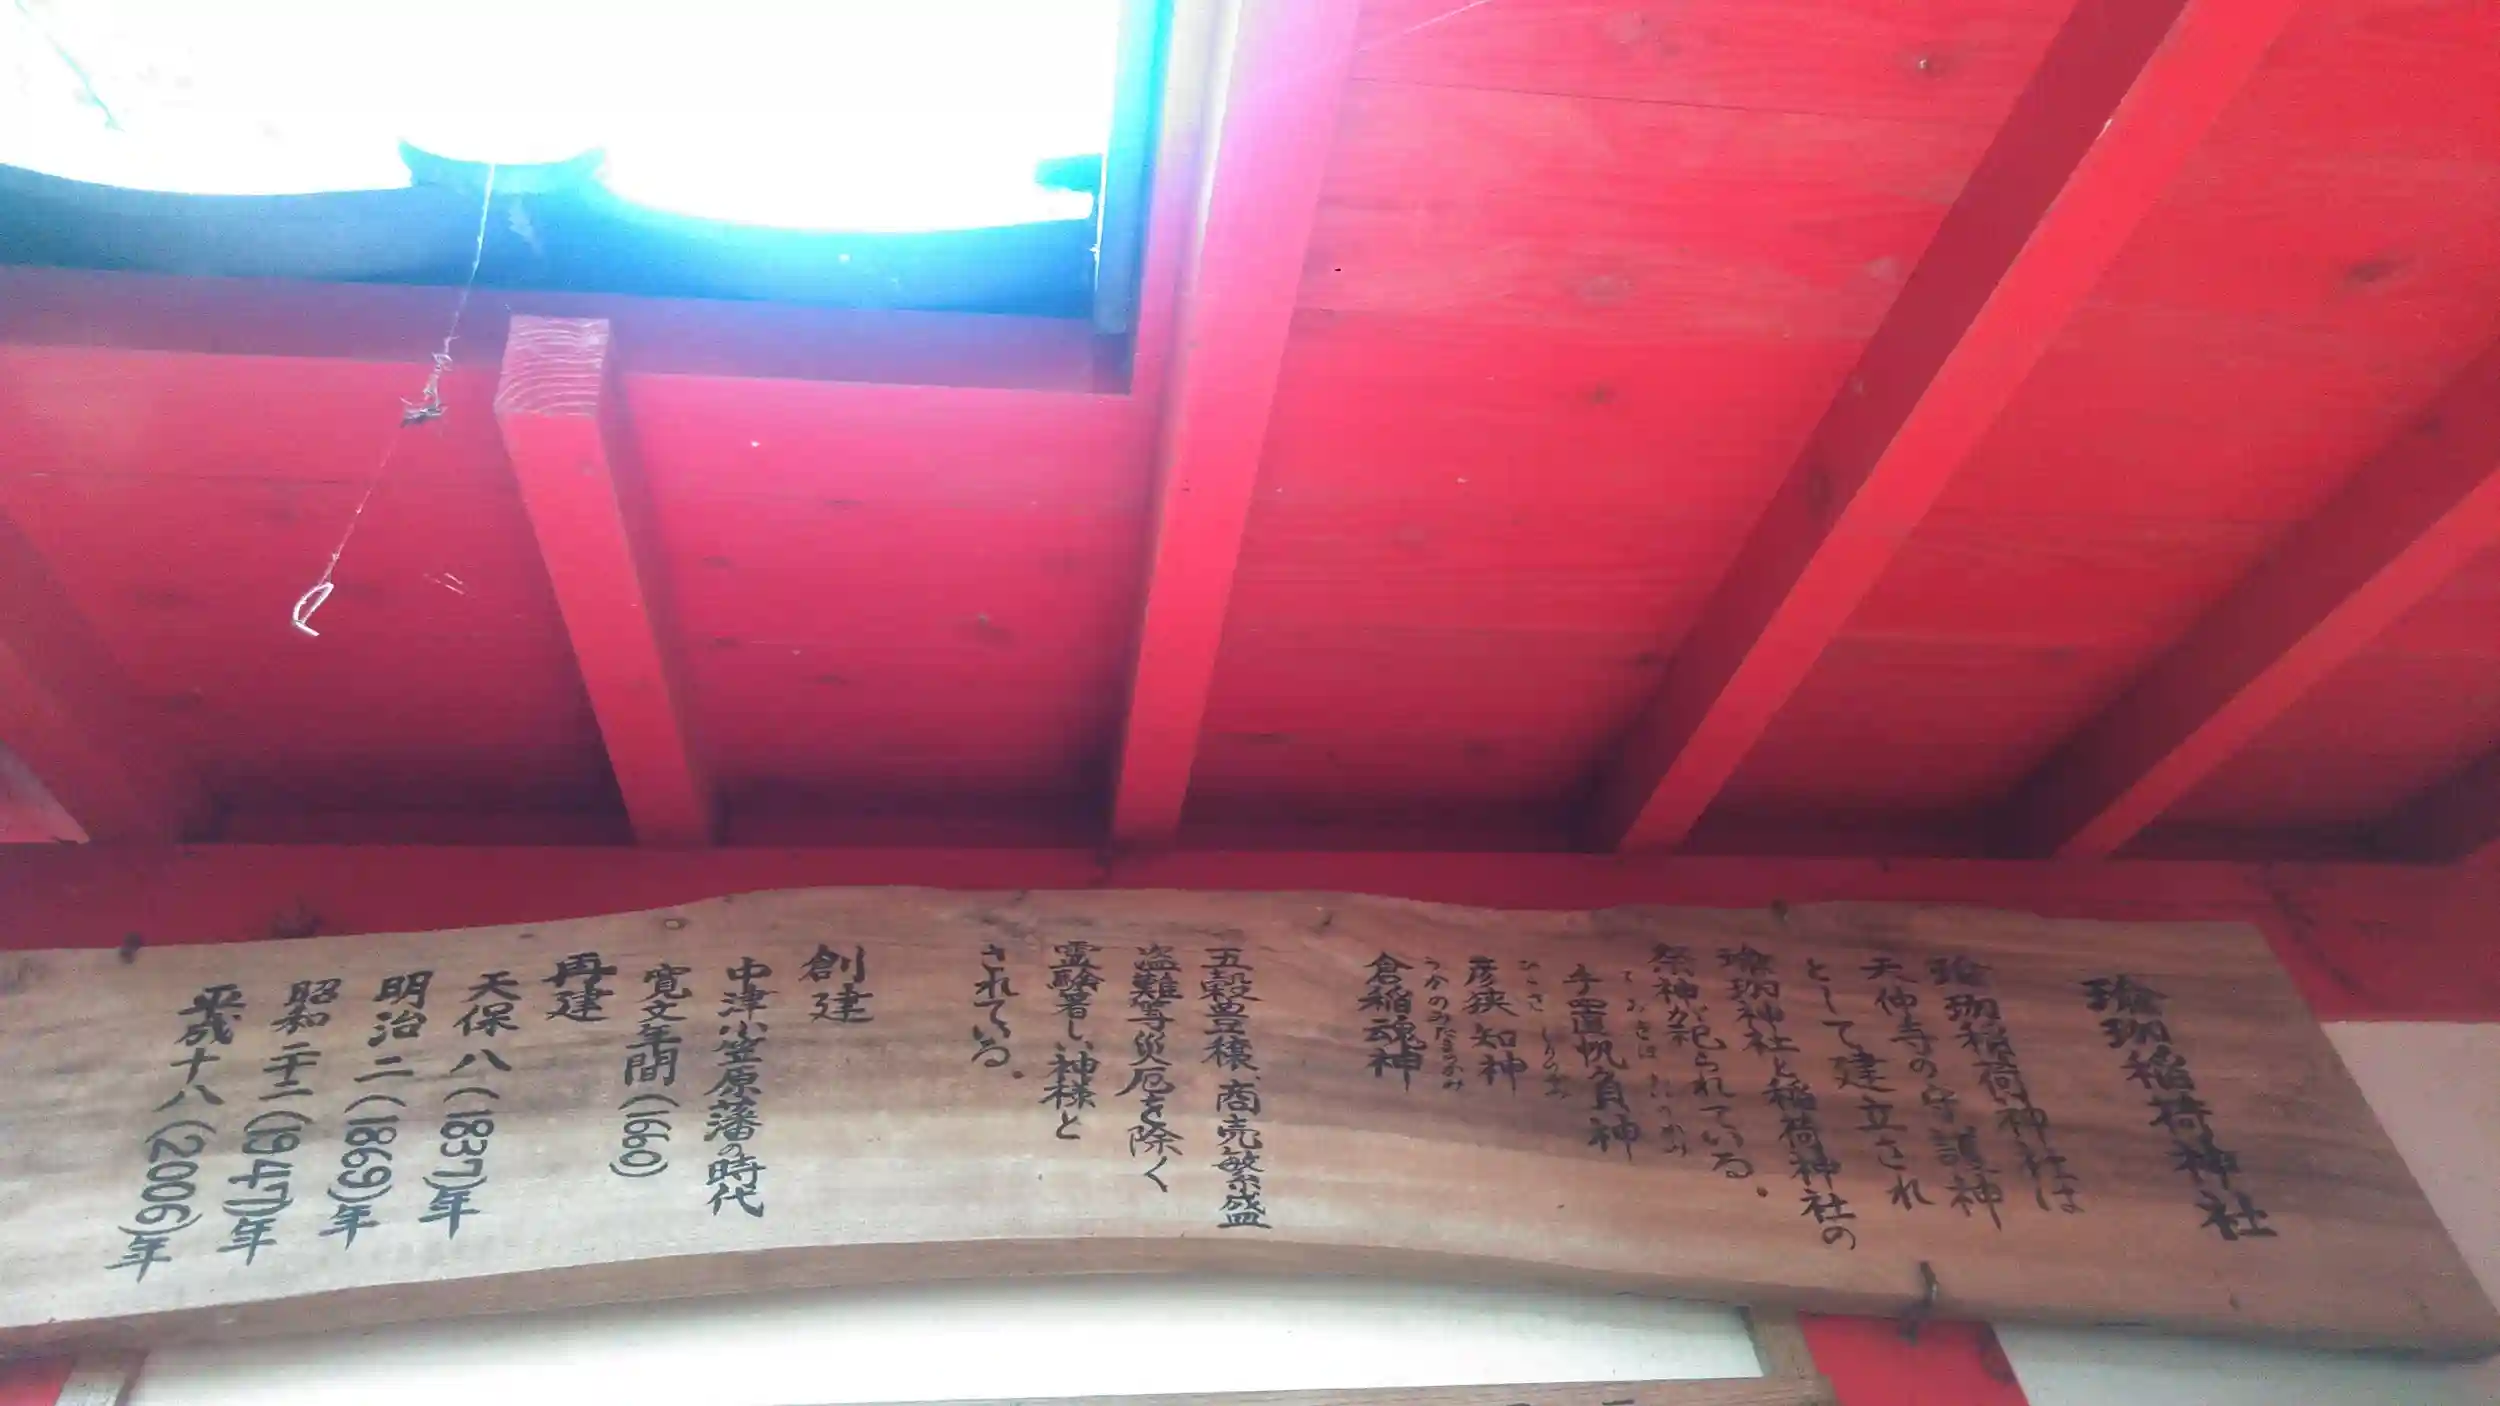 瑜珈稲荷神社
瑜珈稲荷神社は
天仲寺の守護神
として建立され
瑜珈神社と稲荷神社の
祭神が祀られている。
ておきほおいのかみ
手置帆負神
ひこさしりのかみ
彦狭知神
うかのみたまのかみ
倉稲魂神
五穀豊穣、商売繁盛
盗難等災厄を除く
霊験著しい神様と
されている。
創建
中津小笠原藩の時代
寛文年間(1660)
再建
天保八(1837)年
明治二(1869)年
昭和二十二(1947)年
平成十八(2006)年